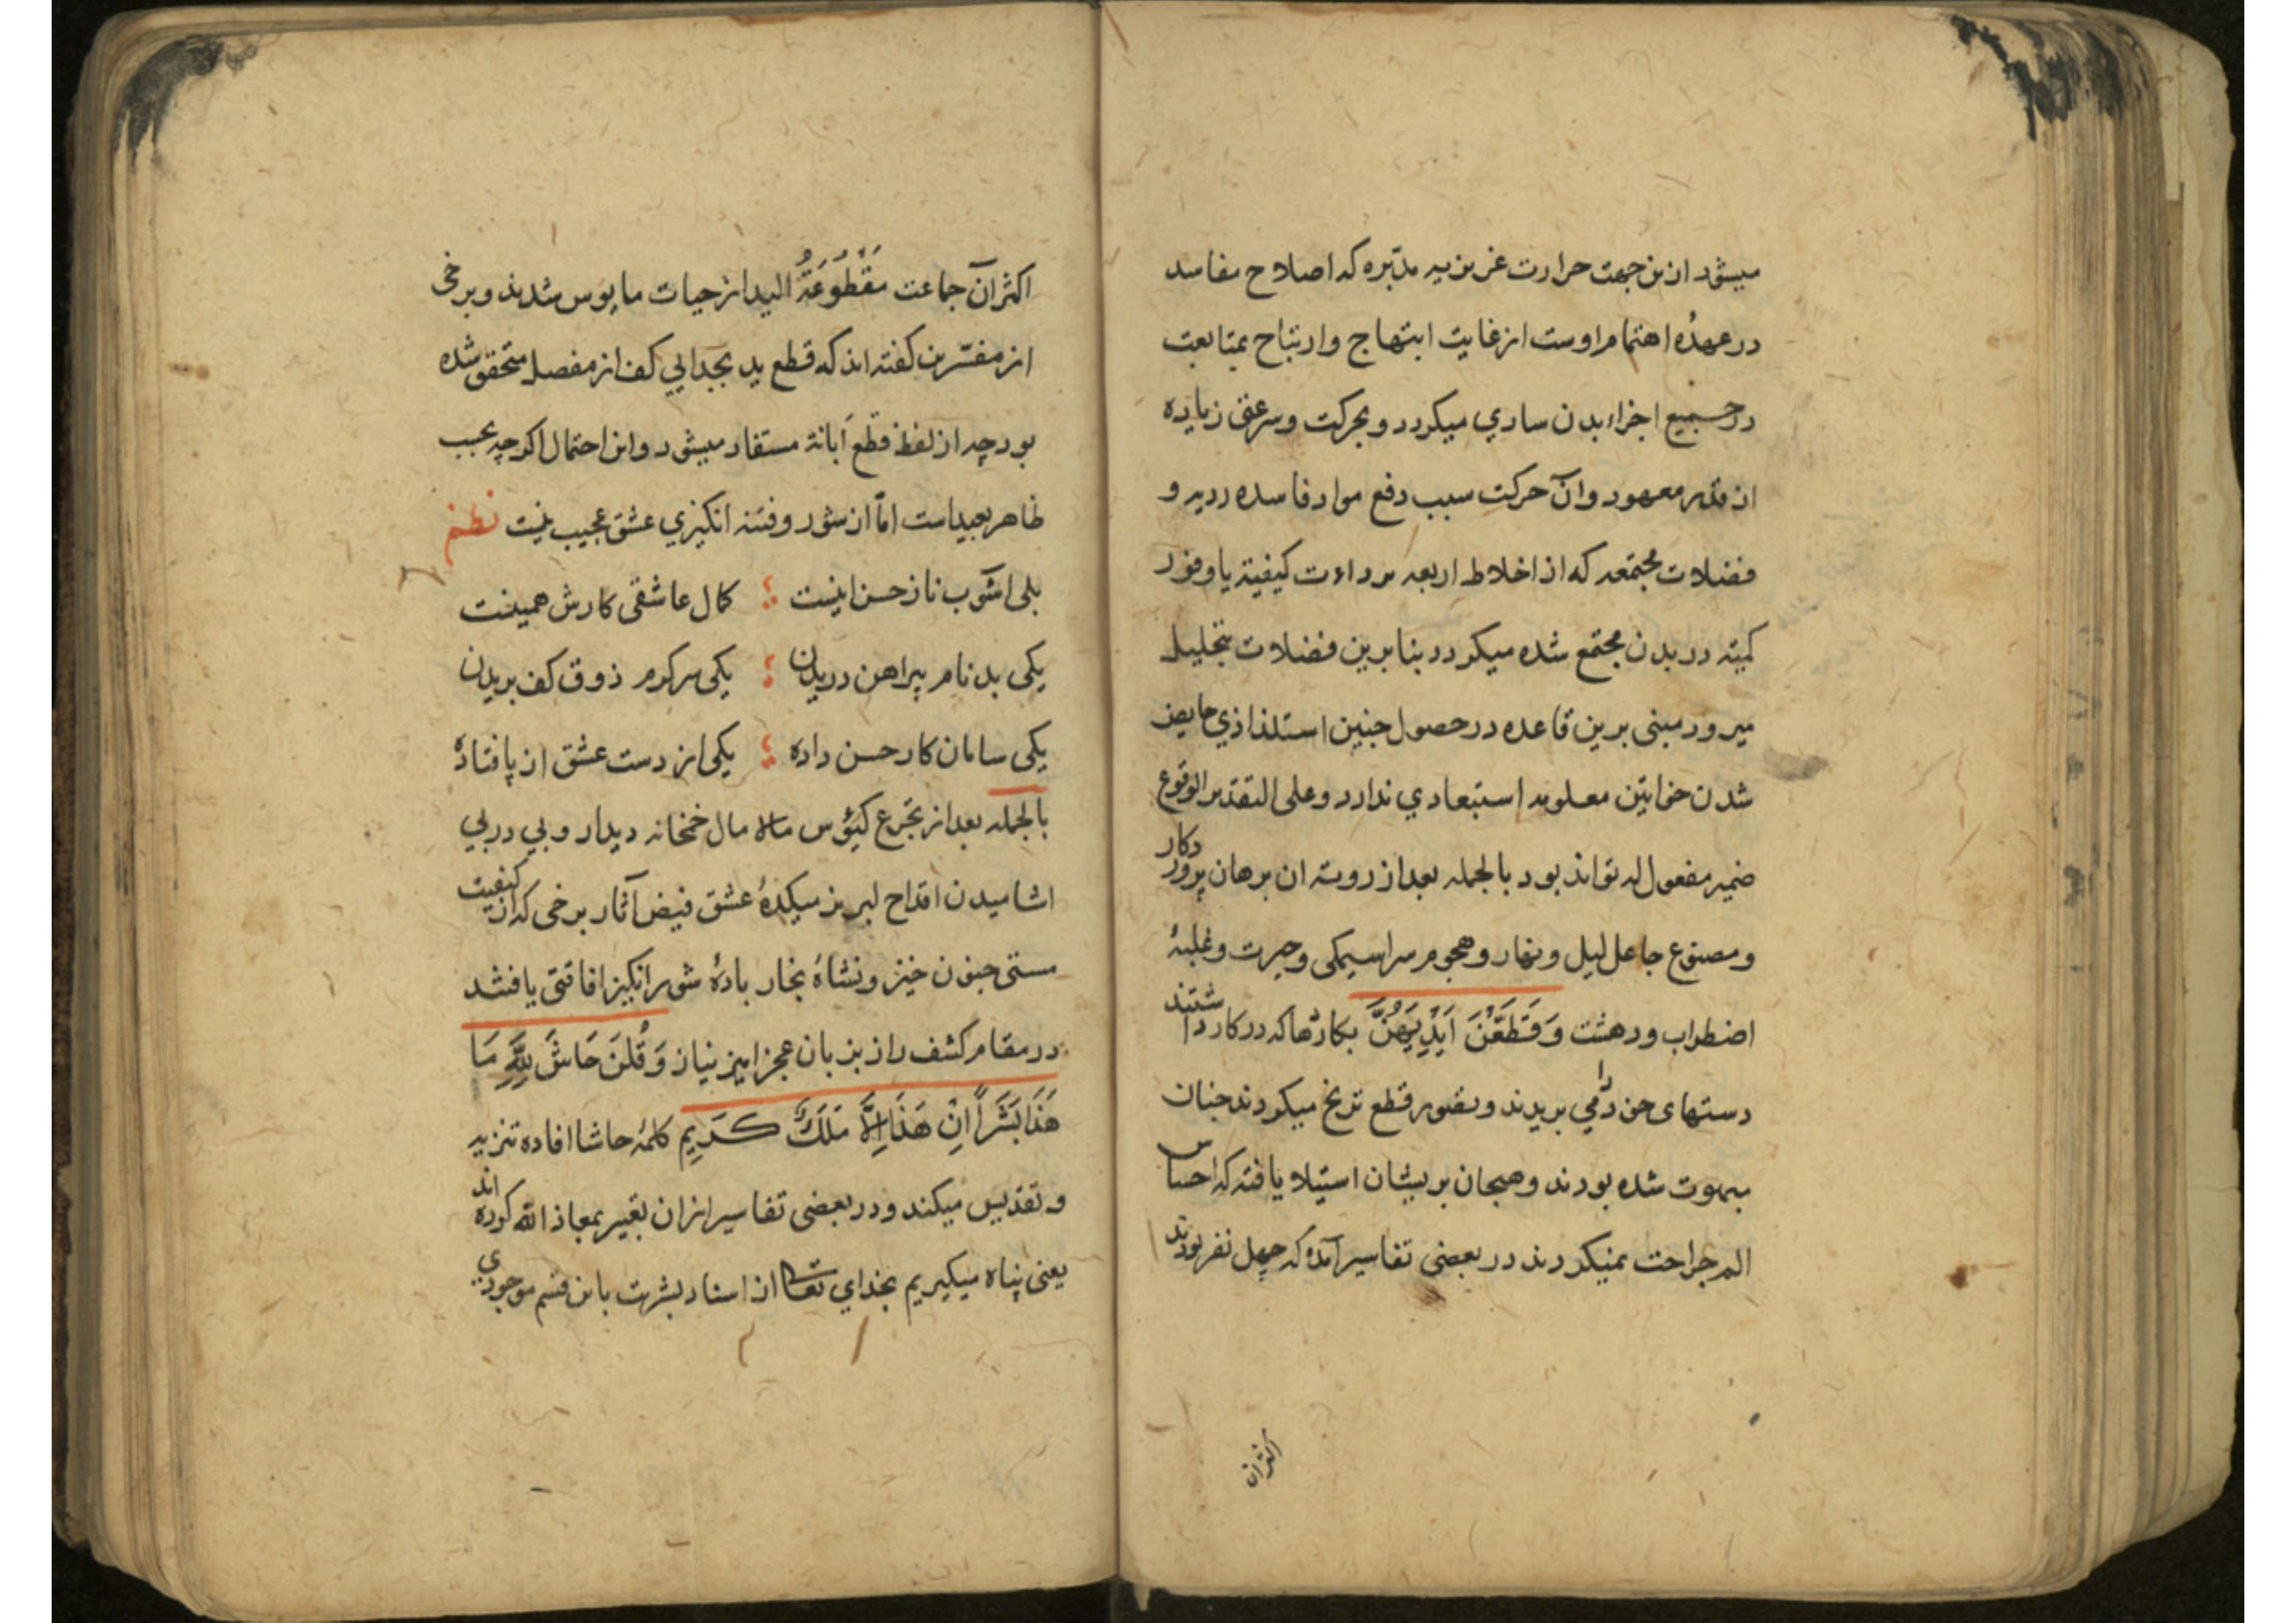 میشود ازین جهت حرارت غریزیه مدبّره که اصلاح مفاسد
در عهدهٔ اهتمام اوست از غایت ابتهاج و ارتیاح بمتابعت
در جمیع اجزاء بدن ساری میکردد و بحرکت و سرعتی زیاده
از قدر معهود و آن حرکت سبب دفع مواد فاسده ردیه و
فضلات مجتمعه که از اخلاط اربعه برداءت کیفیته یا وفور
کمیته در بدن مجتمع شده میکردد بنابرین فضلات بتحلیل
میرود مبنی برین قاعده در حصول چنین استلذاذی حایض
شدن خواتین معلومه استبعادی ندارد و علی التقدیر الوقوع
ضمیر مفعول له تواند بود بالجمله بعد از رویه ان برهان پروردکار
و مصنوع جاعل لیل و نهار و هجوم سراسیمکی و حیرت و غلبهٔ
اضطراب و دهشت وَقَطَّعْنَ اَیْدِیَهُنَّ بکاردها که در کار داشتند
دستهای خود را می بریدند و تصور قطع ترنج میکردند چنان
مبهوت شده بودند و هیجان بریشان استیلا یافته که احساس
الم جراحت نمیکردند در بعضی تفاسیر آمده که چهل نفر بودند
اکثر آن
اکثر آن جماعت مَقْطُوعَةُ الید از حیات مایوس شدند و برخی
از مفسّرین کفته اند که قطع ید بجدایی کف از مفصل متحقق شده
بود چه از لفظ قطع اَبانة مستفاد میشود و این احتمال اکرچه بحسب
ظاهر بعید است امّا از شور و فتنه انکیزی عشق عجیب نیست نظم
بلی اشوب ناز حسن اینست ؛ کمال عاشقی کارش همینست
یکی بدنام پیراهن دریدن ؛ یکی سرکرم ذوق کف بریدن
یکی سامان کار حسن داده ؛ یکی از دست عشق از پا فتاده
بالجمله بعد از تجرع کئوس مالا مال خمخانه دیدار و پی در پی
اشامیدن اقداح لبریز میکدهٔ عشق فیض آثار برخی که از کیفیت
مستی جنون خیز و نشاهٔ بخار بادهٔ شور انکیز افاقتی یافتند
در مقام کشف راز بزبان عجز امیز نیاز وَقُلنَ حَاشَ لِلَّهِ مَا
هَذَا بَشَراً اِنْ هَذَا اِلَّا مَلَكٌ كَرِیم کلمهٔ حاشا افاده تنزیه
و تقدیس میکند و در بعضی تفاسیر ازان تعبیر بمعاذ الله کرده اند
یعنی پناه میکیریم بخدای تعالی از اسناد بشریت باین قسم موجودی